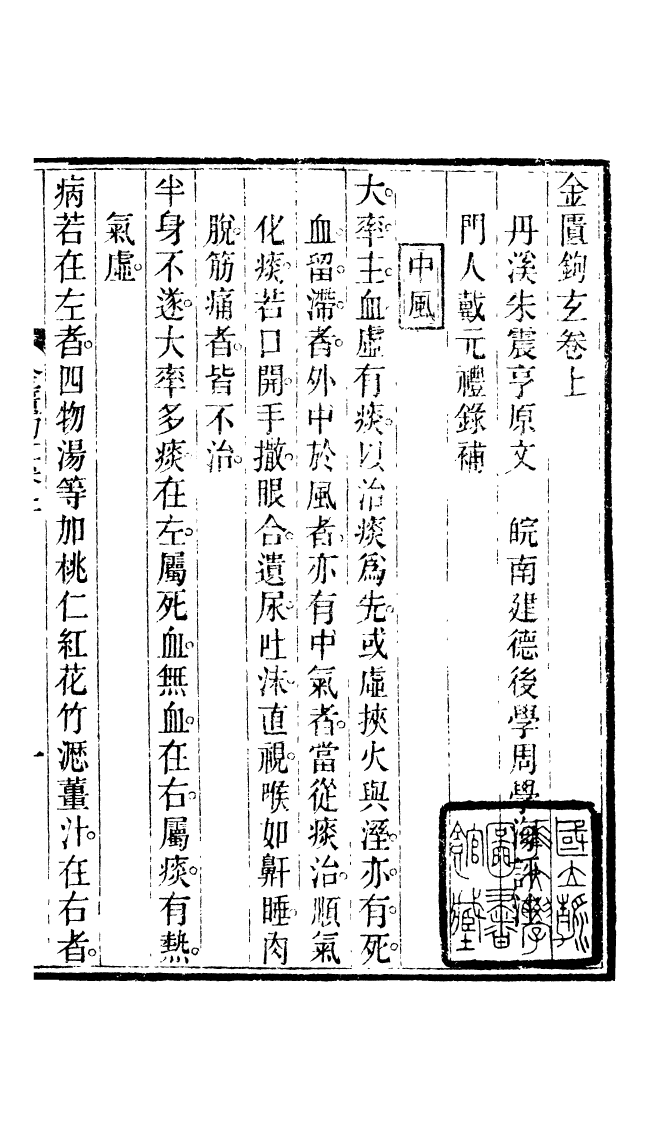 金匱鉤玄卷上
丹溪朱震亨原文 皖南建德後學周學海評注
門人戴元禮錄補
中風
大率主血虛有痰以治痰爲先或虛挾火與溼亦有死
血留滯者外中於風者亦有中氣者當從痰治順氣
化痰若口開手撒眼合遺尿吐沫直視喉如鼾睡肉
脫筋痛者皆不治
半身不遂大率多痰在左屬死血無血在右屬痰有熱
氣虛
病若在左者四物湯等加桃仁紅花竹瀝薑汁在右者